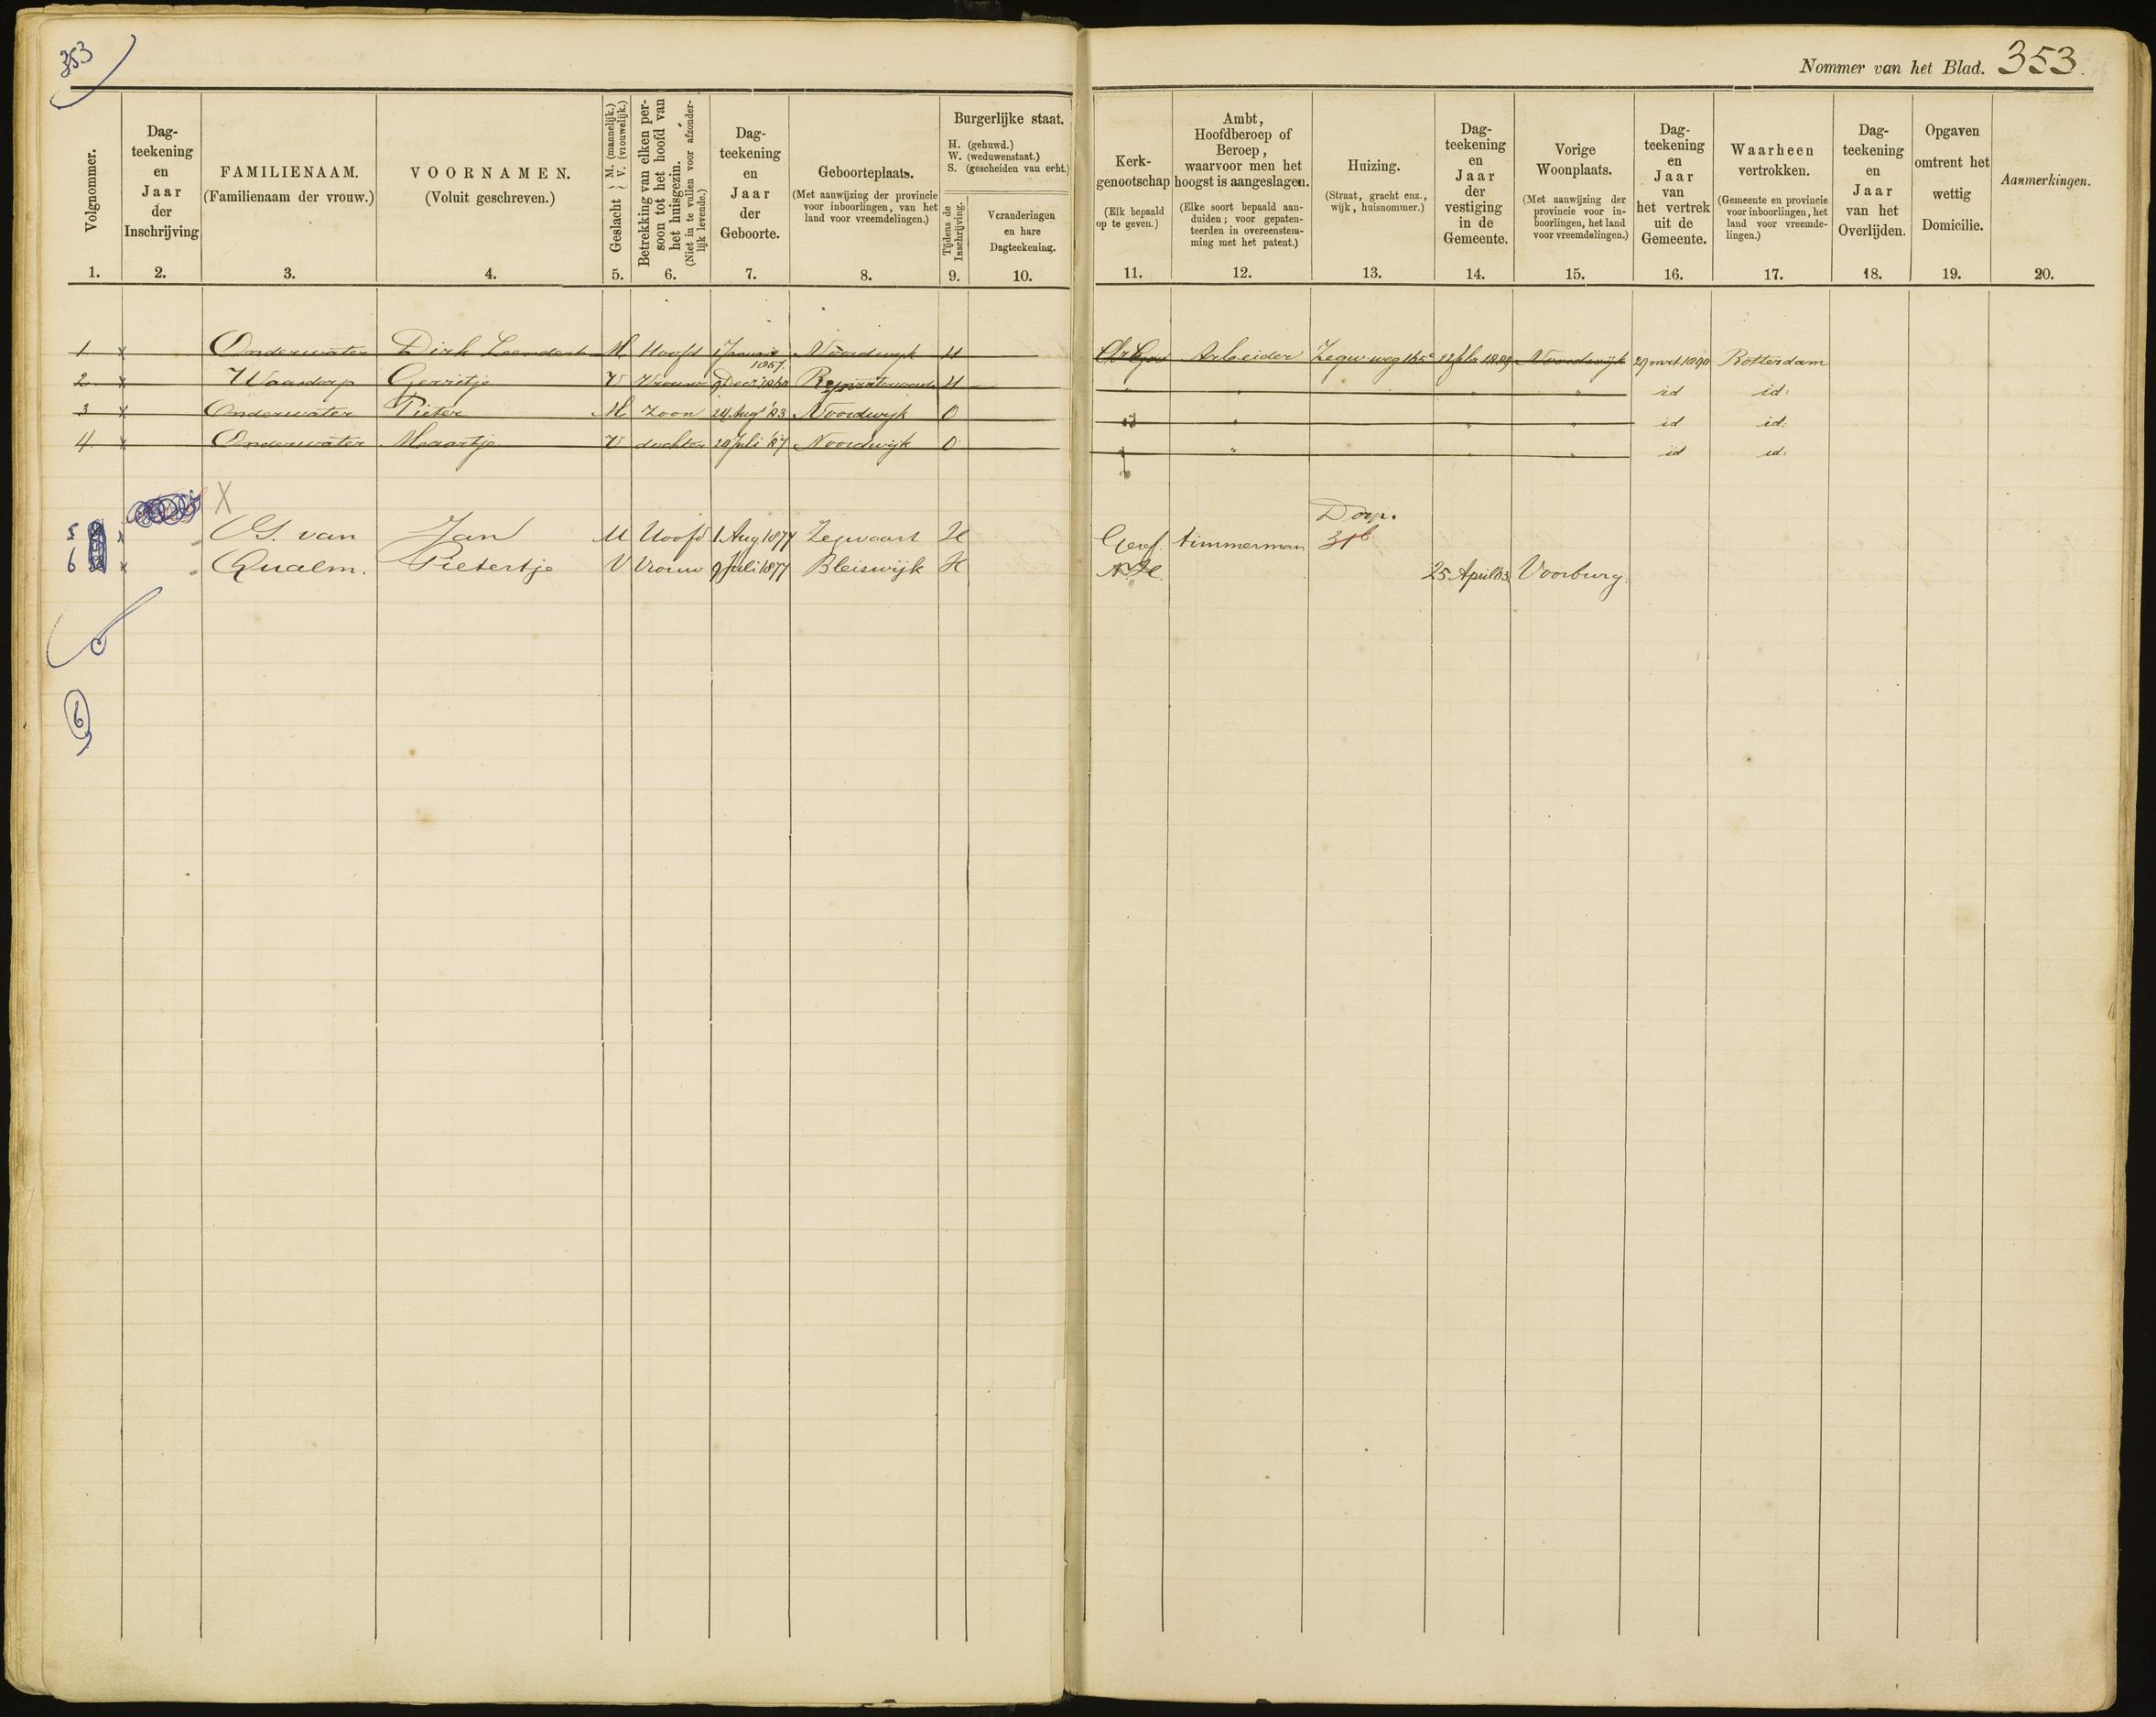 353
Nommer van het Blad. 353.
Volgnommer.
Dag-
teekening
en
Jaar
der
Inschrijving
FAMILIENAAM.
(Familienaam der vrouw.)
VOORNAMEN.
(Voluit geschreven.)
Geslacht { M. (mannelijk.) V. (vrouwelijk.)
Betrekking van elken per-
soon tot het hoofd van
het huisgezin.
(Niet in te vullen voor afzonder-
lijk levende.)
Dag-
teekening
en
Jaar
der
Geboorte.
Geboorteplaats.
(Met aanwijzing der provincie
voor inboorlingen, van het
land voor vreemdelingen.)
Burgerlijke staat.
H. (gehuwd.)
W. (weduwenstaat.)
S. (gescheiden van echt.)
Tijdens de
Inschrijving.
Veranderingen
en hare
Dagteekening.
Kerk-
genootschap
(Elk bepaald
op te geven.)
Ambt,
Hoofdberoep of
Beroep,
waarvoor men het
hoogst is aangeslagen.
(Elke soort bepaald aan-
duiden; voor gepaten-
teerden in overeenstem-
ming met het patent.)
Huizing.
(Straat, gracht enz.,
wijk, huisnommer.)
Dag-
teekening
en
Jaar
der
vestiging
in de
Gemeente.
Vorige
Woonplaats.
(Met aanwijzing der
provincie voor in-
boorlingen, het land
voor vreemdelingen.)
Dag-
teekening
en
Jaar
van
het vertrek
uit de
Gemeente.
Waarheen
vertrokken.
(Gemeente en provincie
voor inboorlingen, het
land voor vreemde-
lingen.)
Dag-
teekening
en
Jaar
van het
Overlijden.
Opgaven
omtrent het
wettig
Domicilie.
Aanmerkingen.
1. 2. 3. 4. 5. 6. 7. 8. 9. 10. 11. 12. 13. 14. 15. 16. 17. 18. 19. 20.
1 x Onderwater Dirk Leendert M Hoofd 1 Januari 1857. Noordwijk H Chr Geref Arbeider Zegw weg 165c 12 feb 1889 Noordwijk 29 mrt 1890 Rotterdam
2 x Waasdorp Gerritje V Vrouw 9 Decr 1860 H " " " " id id.
3 x Onderwater Pieter M Zoon 24 Aug '83 Noordwijk O " " " id id.
4 x Onderwater Maartje V dochter 20 Juli '87 Noordwijk O " " " id id.
X
Dorp.
5 x G. van Jan M Hoofd 1 Aug. 1877 Zegwaart H Geref. timmerman 31b
6 x Qualm. Pietertje V Vrouw 9 Juli 1877 Bleiswijk H N H. 25 April '03 Voorburg.
6